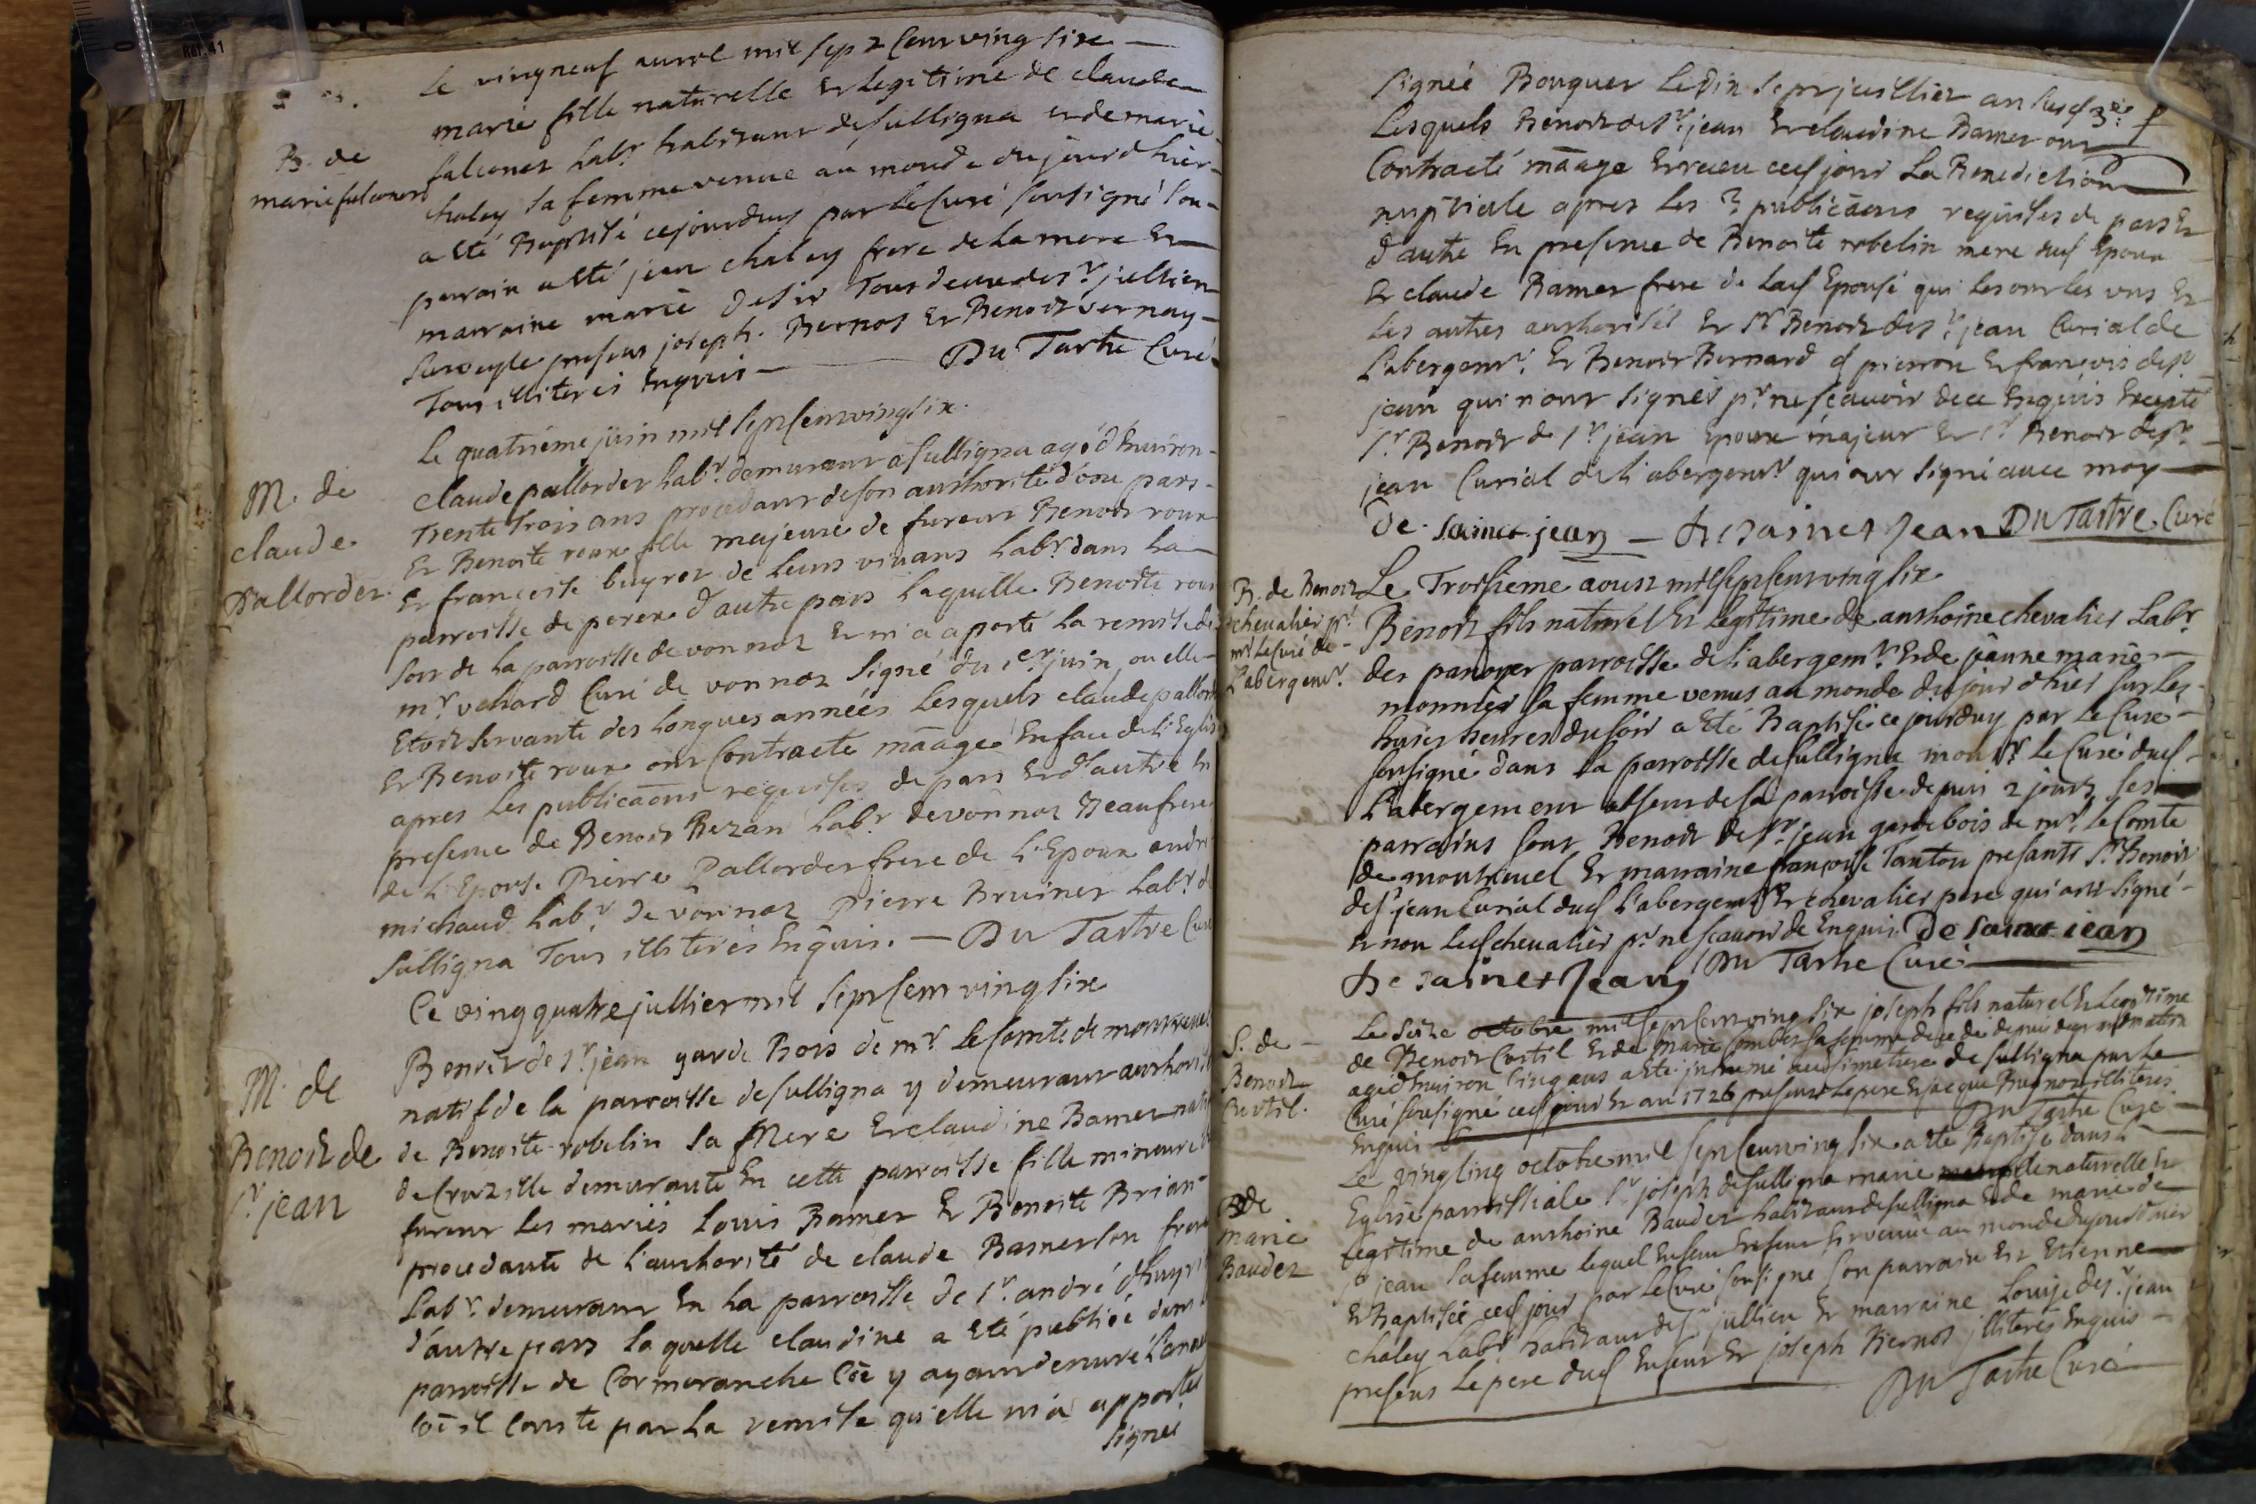 Ref. 41
0
B. de
marie falconet
Le vingneuf avril mil sept Cent ving six
marie fille naturelle Et legitime de claude
falconet labr. habitant de sulligna et de marie
chaley sa femme venue au monde du jour d'hier
a Eté Baptisé cejourduy par Le Curé sousigné son
parrain a Eté jean chaley frere de La mere Et
marraine marie tous deux de st. jullien
presens joseph Bernot Et Benoit vernay
Tous illiteres Enquis Du Tartre Curé
M. de
claude
Pallordet
Le quatriéme juin mil sept Cent ving six
claude pallordet labr. demurant a sulligna agé d'Environ
Trente Trois ans procedant de son authorité d'une part
Et Benoite roux fille majeure de furent Benoit roux
Et francoise buyret de leurs vivans labr. dans La
parroisse de perex d'autre part Laquelle Benoite roux
sort de La parroisse de vonnaz Et m'a aporté La remise de
mr. vehard Curé de vonnaz signé du 1er. juin, ou elle
Etoit servante des Longues années Lesquels claude pallordet
Et Benoite roux ont Contracté māage En face de l'Eglise
apres Les publicaōns requises de part Et d'autre En
presence de Benoit Rezan labr. de vonnaz Beaufrere
de l'Epouse Pierre Pallordet frere de l'Epoux andré
michaud lab.r de vonnaz Pierre Bruinet lab.r de
sulligna Tous illiterés Enquis. — Du Tartre Curé
M. de
Benoit de
st. jean
Ce ving quatre jullier mil sept Cent ving six
Benoit de st. jean garde Bois de mr. Le Comte de montrevel
natif de la parroisse de sulligna y demeurant authorisé
de Benoite robelin sa Mere Et claudine Bamet native
de Cruzille demurante En cette parroisse fille mineure de
furent Les mariés Louis Bamet Et Benoite Brian
procedante de L'authorité de claude Bamet son frere
Labr. demurant En La parroisse de st. andré d'huyriat
d'autre part Laquelle claudine a Eté publiée dans la
parroisse de Cormoranche Cōe y ayant demuré L'année
Cōe il Conste par La remise qu'elle m'a apportée
signée
signée Bouquet Ledix sept juillier an susd
Lesquels Benoit de st. jean Et claudine Bamet ont
Contracté māage Et receu ced jour La Benediction
nuptiale apres Les 3 publicaōns requises de part Et
d'autre En presence de Benoite robelin mere dud Epoux
Et claude Bamet frere de Lad Epouse qui Les ont Les uns Et
Les autres authorisés Et sr Benoit de st. jean Curial de
L'abergemt. Et Benoit Bernard Et francois de st
jean qui n'ont signés pr. ne sçavoir de ce Enquis Excepté
sr. Benoit de st. jean Epoux majeur Et sr. Benoit de st.
jean Curial de L'abergemt. qui ont signé avec moy
De Sainct jean — De Sainct Jean Du Tartre. Curé
B. de Benoit
chevalier pr.
mr. Le Curé de
L'abergemt.
Le Troisieme aoust mil sept Cent ving six
Benoit fils naturel Et legitime de anthoine chevalier Labr.
des panoyer parroisse de l'abergemt. Et de jeanne marie
monnier sa femme venus au monde du jour d'hier sur Les
huict heures du soir a Eté Baptisé cejourduy par Le Curé
sousigné dans La parroisse de sulligna monsr. Le Curé dud
L'abergement absent de sa parroisse depuis 2 jours ses
parrains sont Benoit de st. jean garde bois de mr. Le Comte
de montrevel Et marraine francoise Tantou presants sr. Benoit
de st. jean Curial dud L'abergemt Et chevalier pere qui ont signé
Et non Led chevalier pr. ne sçavoir de Enquis. De Sainct jean
De Sainct Jean Du Tartre Curé
S. de
Benoit
Curtil.
Le seize octobre mil sept Cent ving six joseph fils naturel Et Legitime
de Benoit Curtil Et de marie Combet sa femme decedé depuis hyer
agé d'Environ Cinq ans a Eté inhumé au simetiere de sulligna par Le
Curé sousigné ced jour Et an 1726 presents Le pere Et jacque Bugnot illiterés
Enquis Du Tartre Curé
B de
marie
Baudet
Le ving Cinq octobre mil sept Cent ving six a Eté Baptisé dans L'
Eglise parroissiale st joseph de sulligna marie naturelle Et
Legitime de anthoine Baudet habitant de sulligna Et de marie de
st jean sa femme lequel Enfant venue au monde du jour d'hier
Et Baptisée ced jour par Le Curé sousigné son parrain Est Etienne
chaley labr habitant de st jullien Et marraine Louise de st. jean
presens Le pere dud Enfant Et joseph Bernot illiterés Enquis
Du Tartre Curé